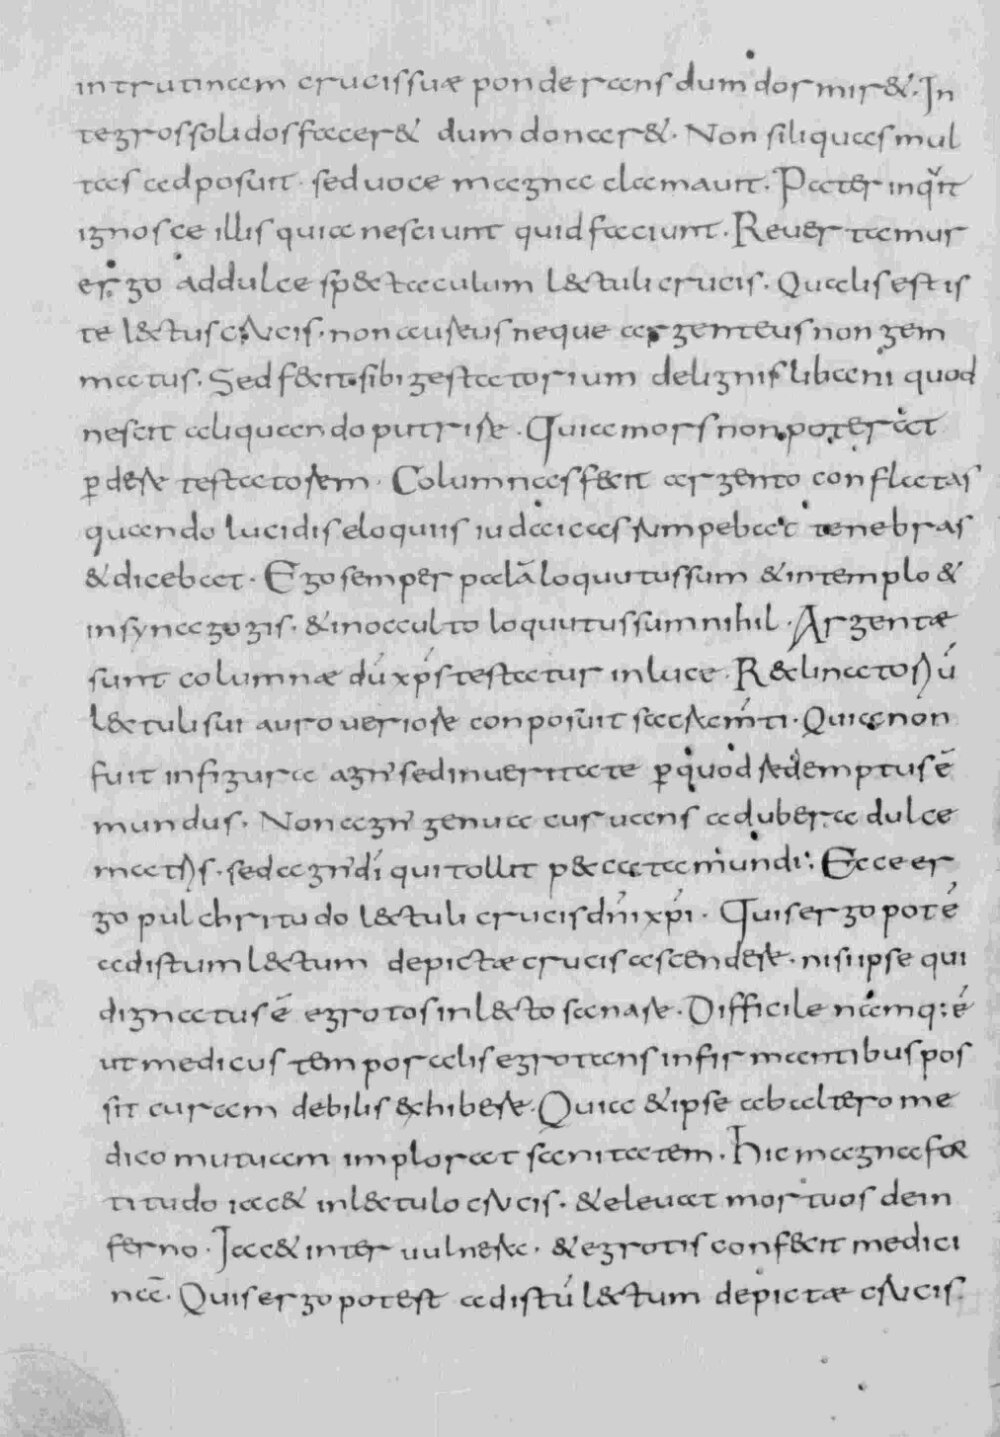 in trutinam crucis suæ ponderans dum dormir&. In
tegros solidos facer& dum donar&. Non siliquas mul
tas adposuit. sed uoce magna clamauit. Pater inqͥt
ignosce illis quia nesciunt quid faciunt. Reuertamur
ergo ad dulce sp&taculum l&tuli crucis. Qualis est is
te l&tus crucis. non aureus neque argenteus non gem
matus. Sed f&it sibi gestatorium de lignis libani quod
nescit aliquando putrire. Quia mors non poterat
ꝑdere testatorem. Columnas f&it argento conflatas
quando lucidis eloquiis iudaicas rumpebat tenebras
& dicebat. Ego semper palā loquutus sum & in templo &
in synagogis. & in occulto loquutus sum nihil. Argentæ
sunt columnæ dū xp̄s testatur in luce. R&linatoriū
l&tuli sui auro ueriore conposuit sacram̄ti. Quia non
fuit in figura agni sed in ueritate ꝑ quod redemptus ē
mundus. Non agni genua curuans ad ubera dulce
matris. sed agni dī qui tollit p&cata mundi. Ecce er
go pulchritudo l&tuli crucis dn̄i xp̄i. Quis ergo potē
ad istum l&tum depictæ crucis ascendere. nisi ipse qui
dignatus ē egrotos in l&to sanare. Difficile namq: ē
ut medicus temporalis egrotans infirmantibus pos
sit curam debilis exhibere. Quia & ipse ab altero me
dico mutuam implorat sanitatem. Hic magna for
titudo iac& in l&tulo crucis. & eleuat mortuos de in
ferno. Jac& inter uulnera. & egrotis conf&it medici
nā. Quis ergo potest ad istū l&tum depictæ crucis